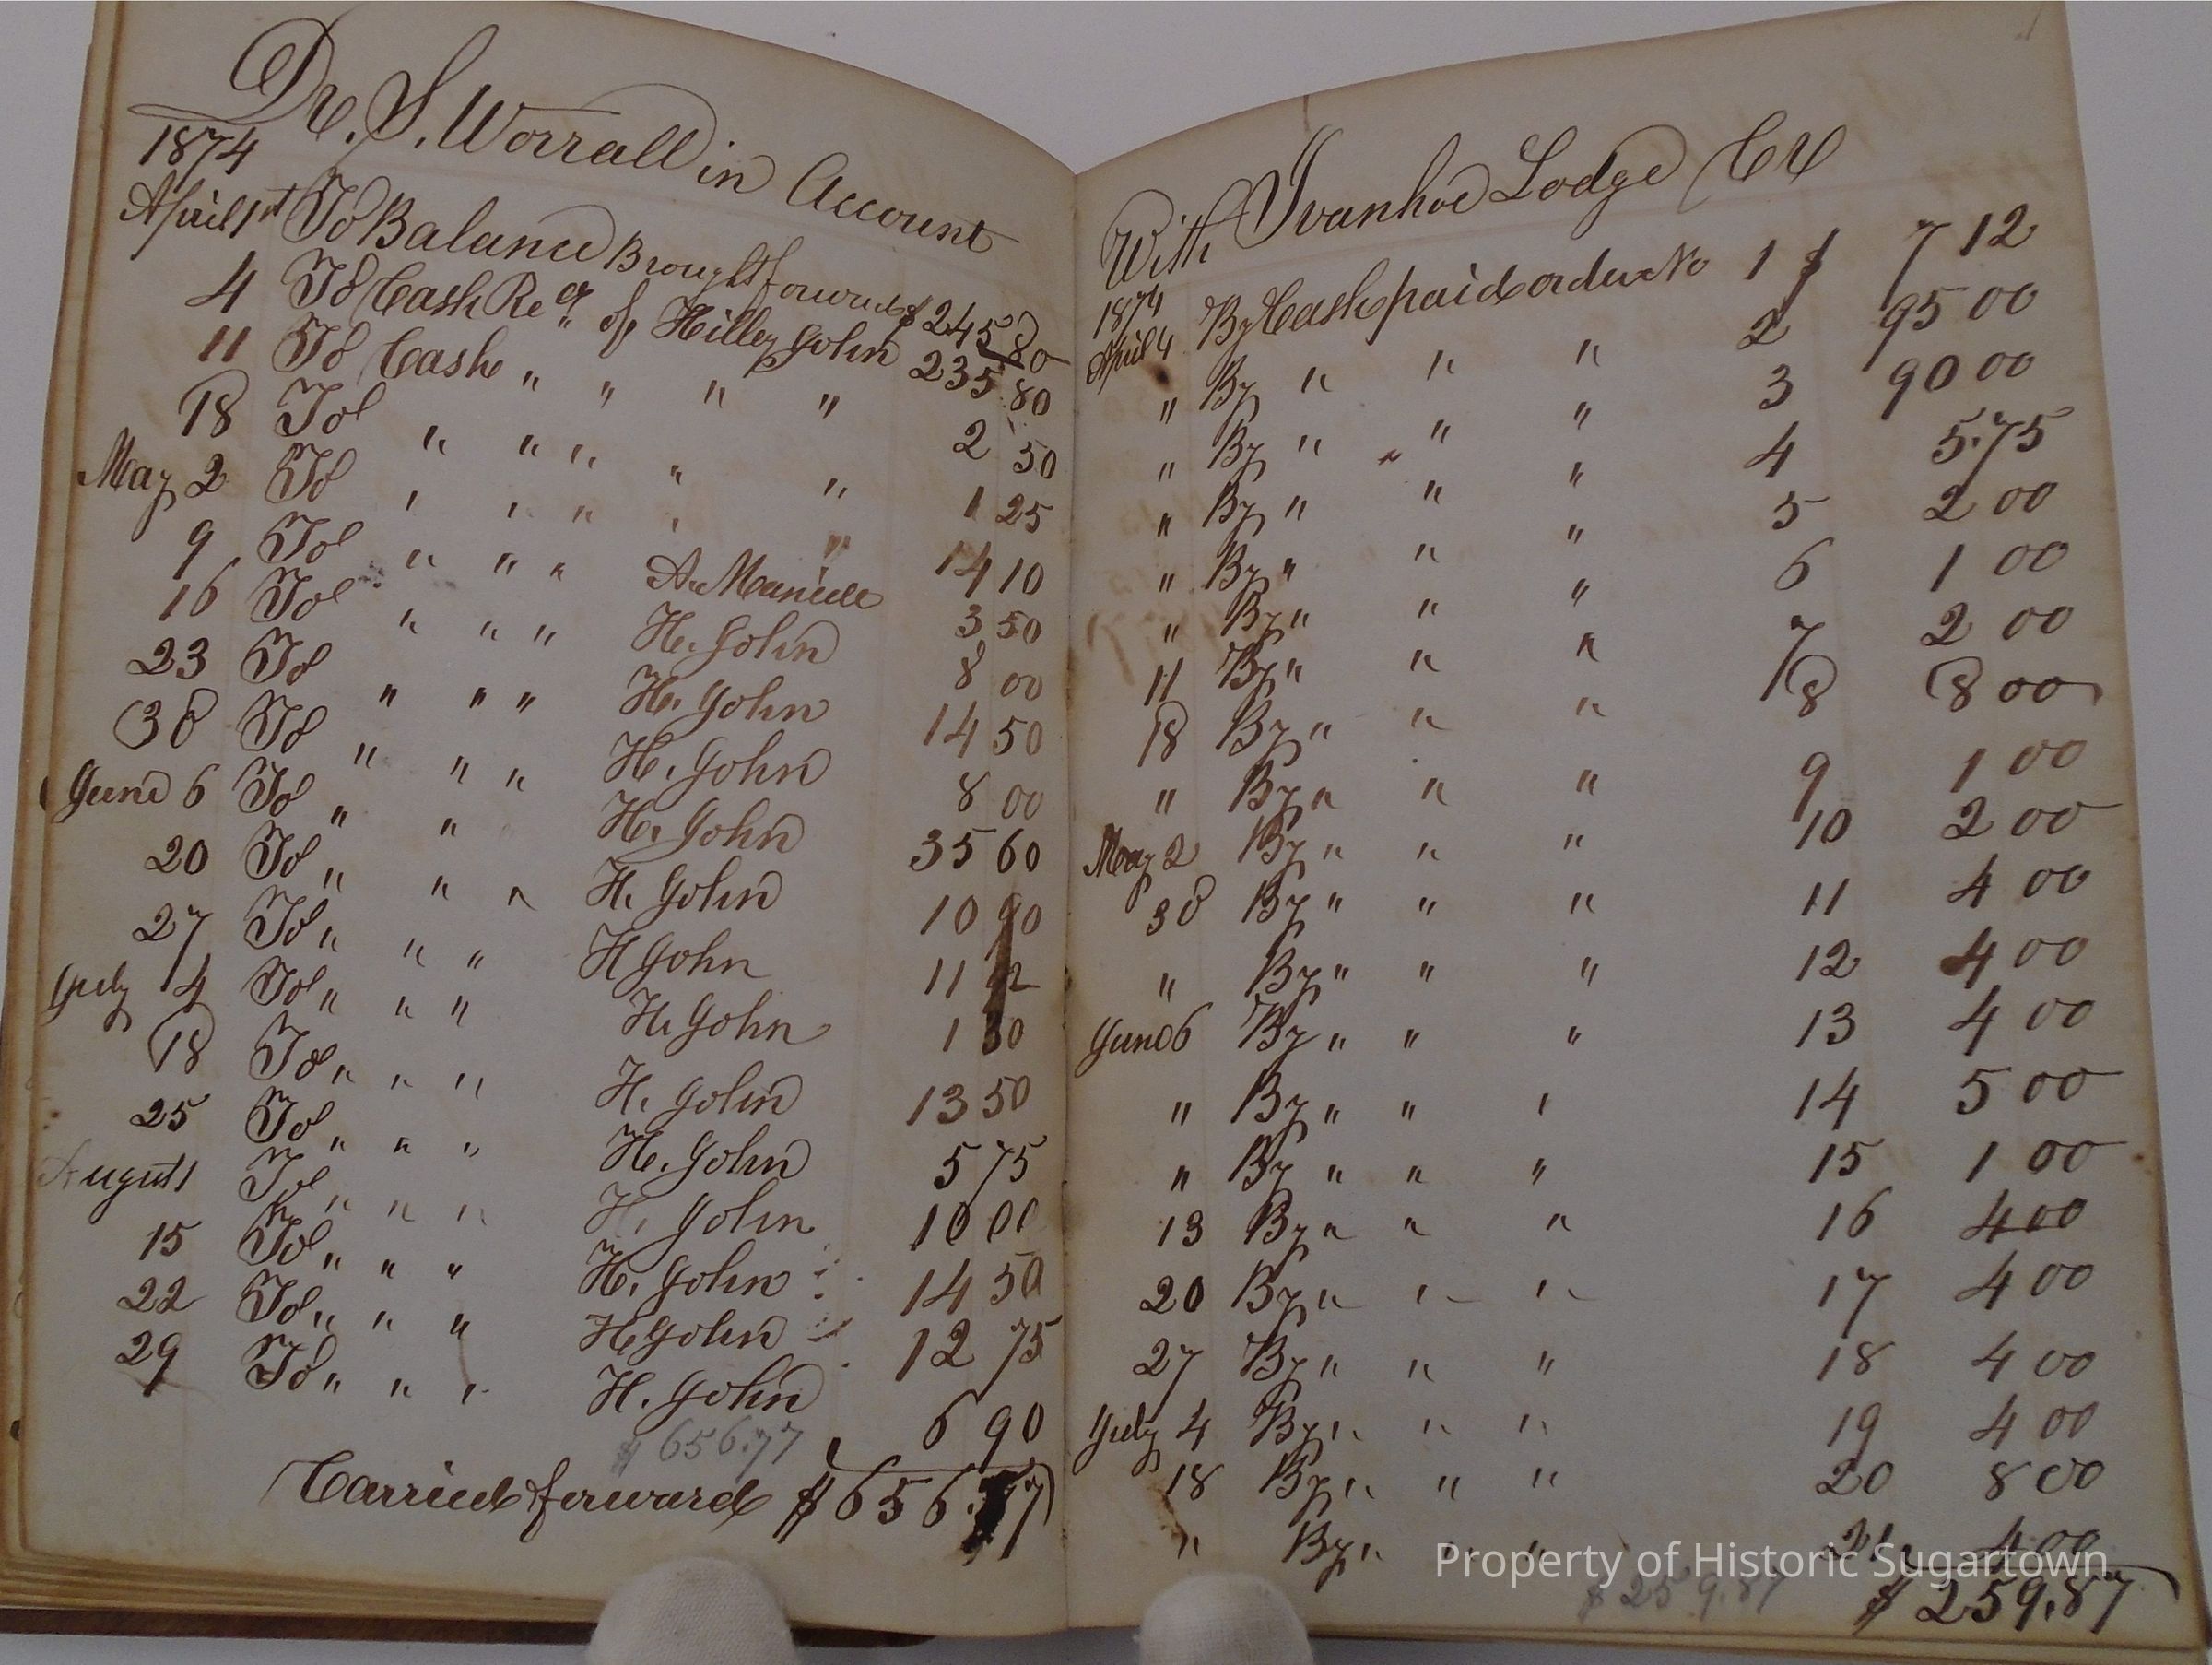 Dr. S. Worrall in Account
1874
April 1st To Balance Brought forward $ 245 80
4 To Cash Recd. of Hillery John 235 80
11 To Cash " " " " 2 50
18 To " " " " " 1 25
May 2 To " " " " " 14 10
9 To " " " A. 3 50
16 To " " " H. John 8 00
23 To " " " H. John 14 50
30 To " " " H. John 8 00
June 6 To " " H. John 35 60
20 To " " " H. John 10 90
27 To " " " H John 11 42
July 4 To " " " H. John 1 30
18 To " " " H. John 13 50
25 To " " " H. John 5 75
August 1 To " " " H. John 10 00
15 To " " " H. John 14 50
22 To " " " H John 12 75
29 To " " " H. John 6 90
$ 656.77
Carried forward $ 656.77
With Ivanhoe Lodge Cr
1874
April 4 By Cash paid order No 1 $ 7 12
" By " " " 2 95 00
" By " " " 3 90 00
" By " " " 4 5.75
" By " " " 5 2 00
" By " " " 6 1 00
11 By " " " 7 2 00
18 By " " " 8 8 00
" By " " " 9 1 00
May 2 By " " " 10 2 00
30 By " " " 11 4 00
" By " " " 12 4 00
June 6 By " " " 13 4 00
" By " " " 14 5 00
" By " " " 15 1 00
13 By " " " 16 4 00
20 By " " " 17 4 00
27 By " " " 18 4 00
July 4 By " " " 19 4 00
18 By " " " 20 8 00
" By " " " 21 4 00
$ 259.87
$ 259.87
Property of Historic Sugartown